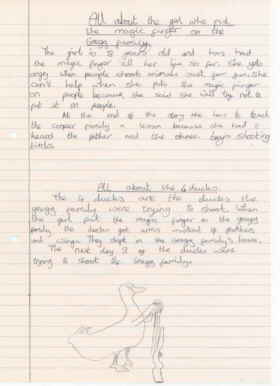 All about the girl who put
the magic finger on the
Gregg family.
The girl is 8 years old and has had
the magic finger all her life so far. She gets
angry when people shoots animals just for fun. She
can't help when she puts the magic finger
on people because she said she will try not to
put it on people.
At the end of the story she has to teach
the cooper family a lesson because she had
heard the father and the others begin shooting
birds
All about the 4 ducks
The 4 ducks are the ducks the
gregg family were trying to shoot. When
the girl put the magic finger on the greggs
family the ducks got arms instead of feathers
and wings. They slept in the Gregg family's house.
The next day it of the ducks were
trying to shoot the Greggs family.